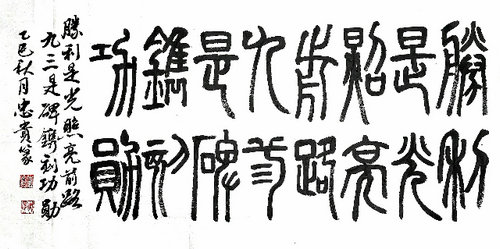 勝利
是光
照亮
前路
九三
是碑
鐫刻
功勛
勝利是光照亮前路
九三是碑鐫刻功勛
乙巳秋月忠貴篆